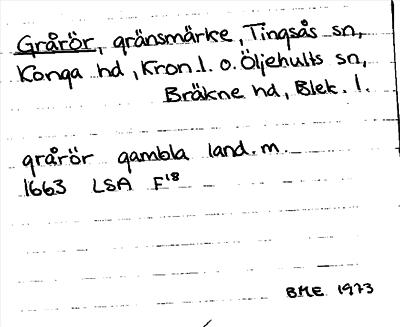 Grårör, gränsmärke, Tingsås sn,
Konga hd, Kron.l. o. Öljehults sn,
Bräkne hd, Blek. l.
grårör gambla land.m.
1663 LSA F18
BME 1973